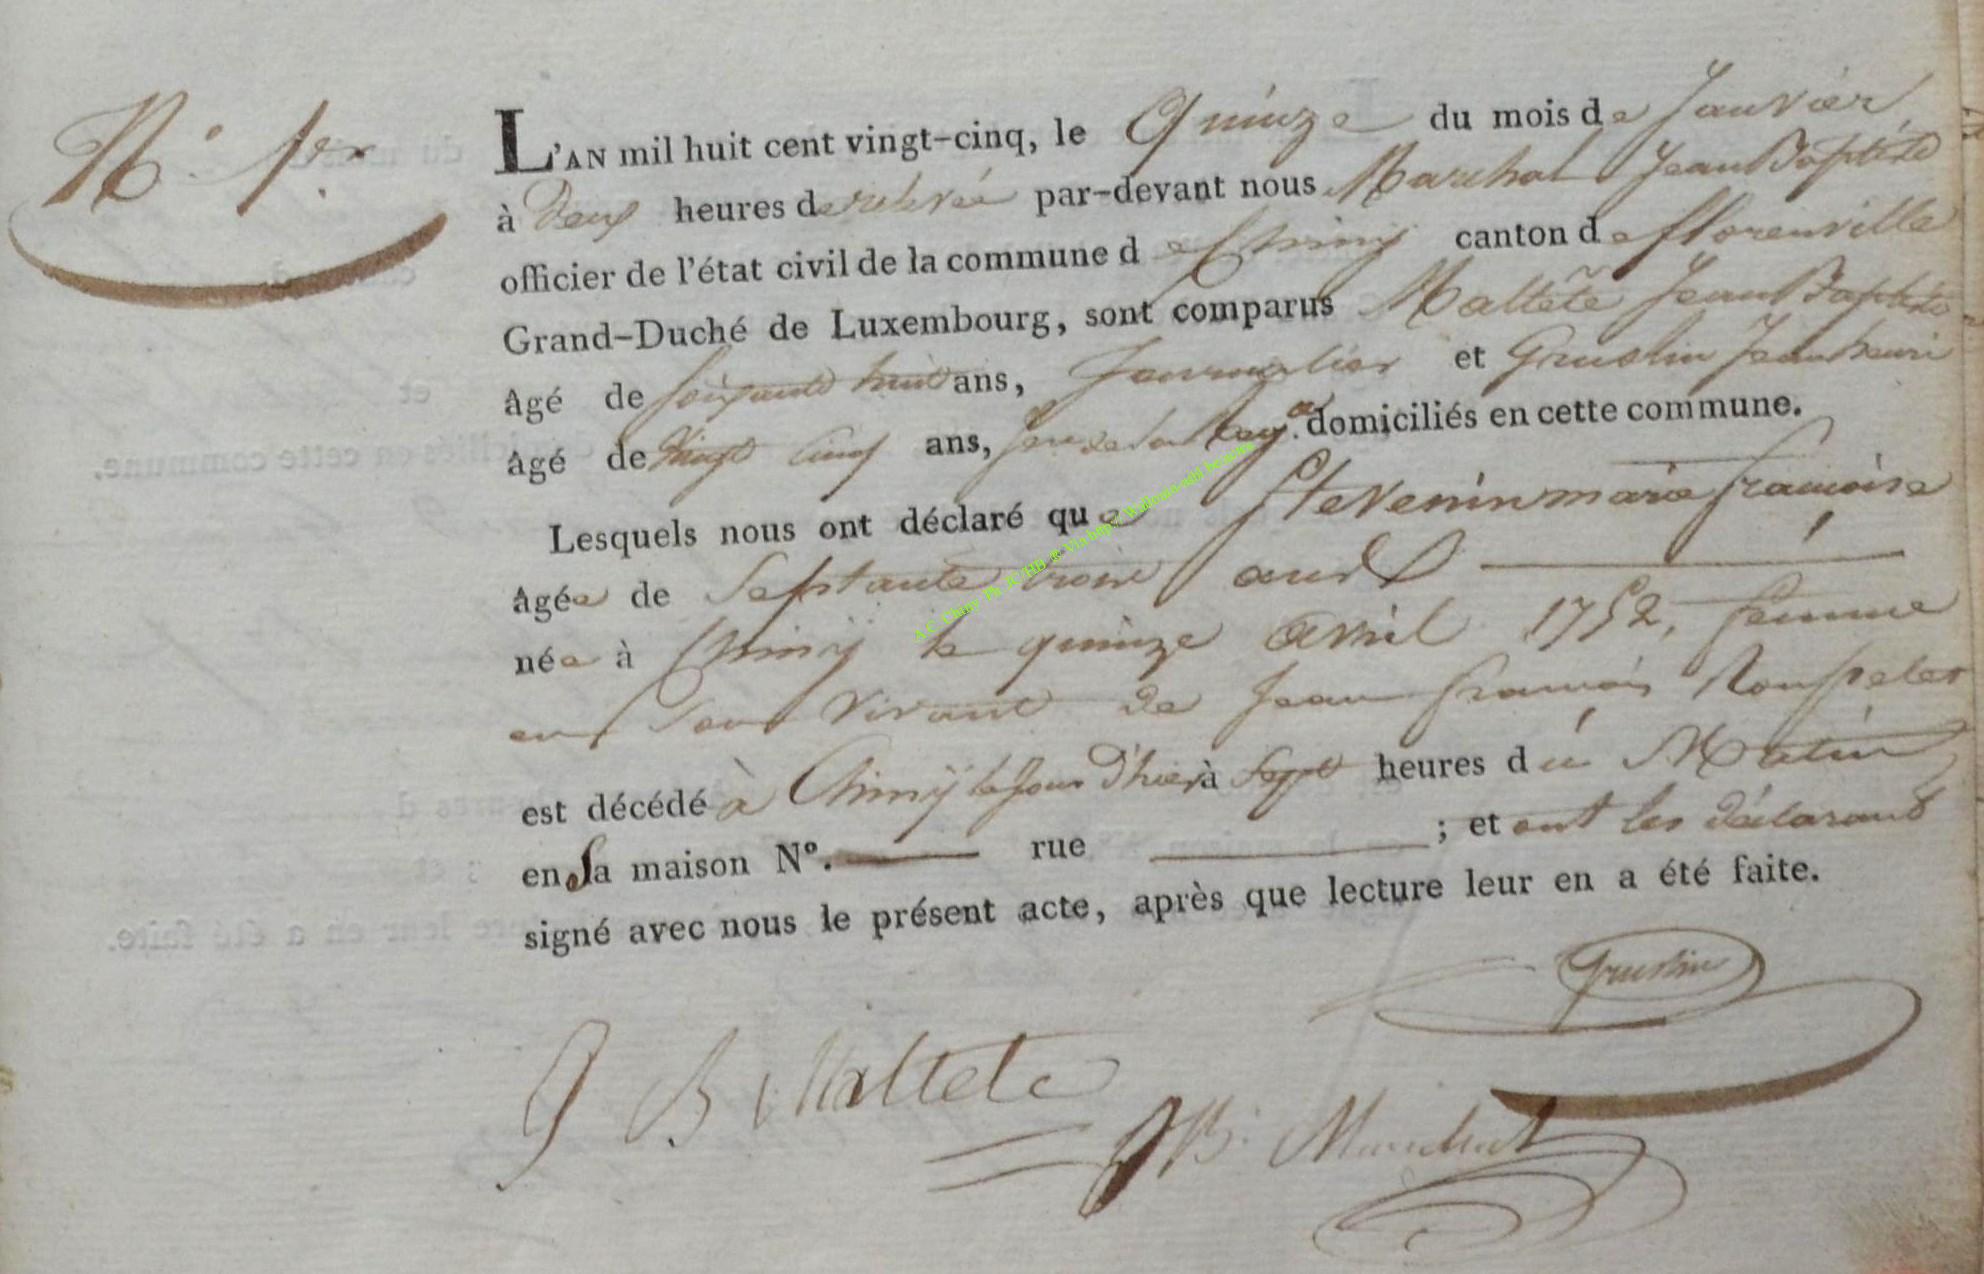 N.º 1.er
L'AN mil huit cent vingt-cinq, le Quinze du mois de Janvier
à Deux heures de relevée par-devant nous Marchal Jean Baptiste
officier de l'état civil de la commune de Chiny canton de florenville
Grand-Duché de Luxembourg, sont comparus Maltête Jean Baptiste
âgé de soixante huit ans, Journalier et Gruslin Jean henri
âgé de Vingt Cinq ans, domiciliés en cette commune.
Lesquels nous ont déclaré que Stevenin marie françoise
âgée de Septante trois ans
née à Chiny le quinze avril 1752, femme
en son vivant de Jean françois
est décédé à Chiny le Jour D'hier à Sept heures du Matin
en sa maison Nº. rue ; et ont les déclarans
signé avec nous le présent acte, après que lecture leur en a été faite.
Gruslin
J B Maltete
JB. Marchal
A.C. Chiny Ph JC/HB ®